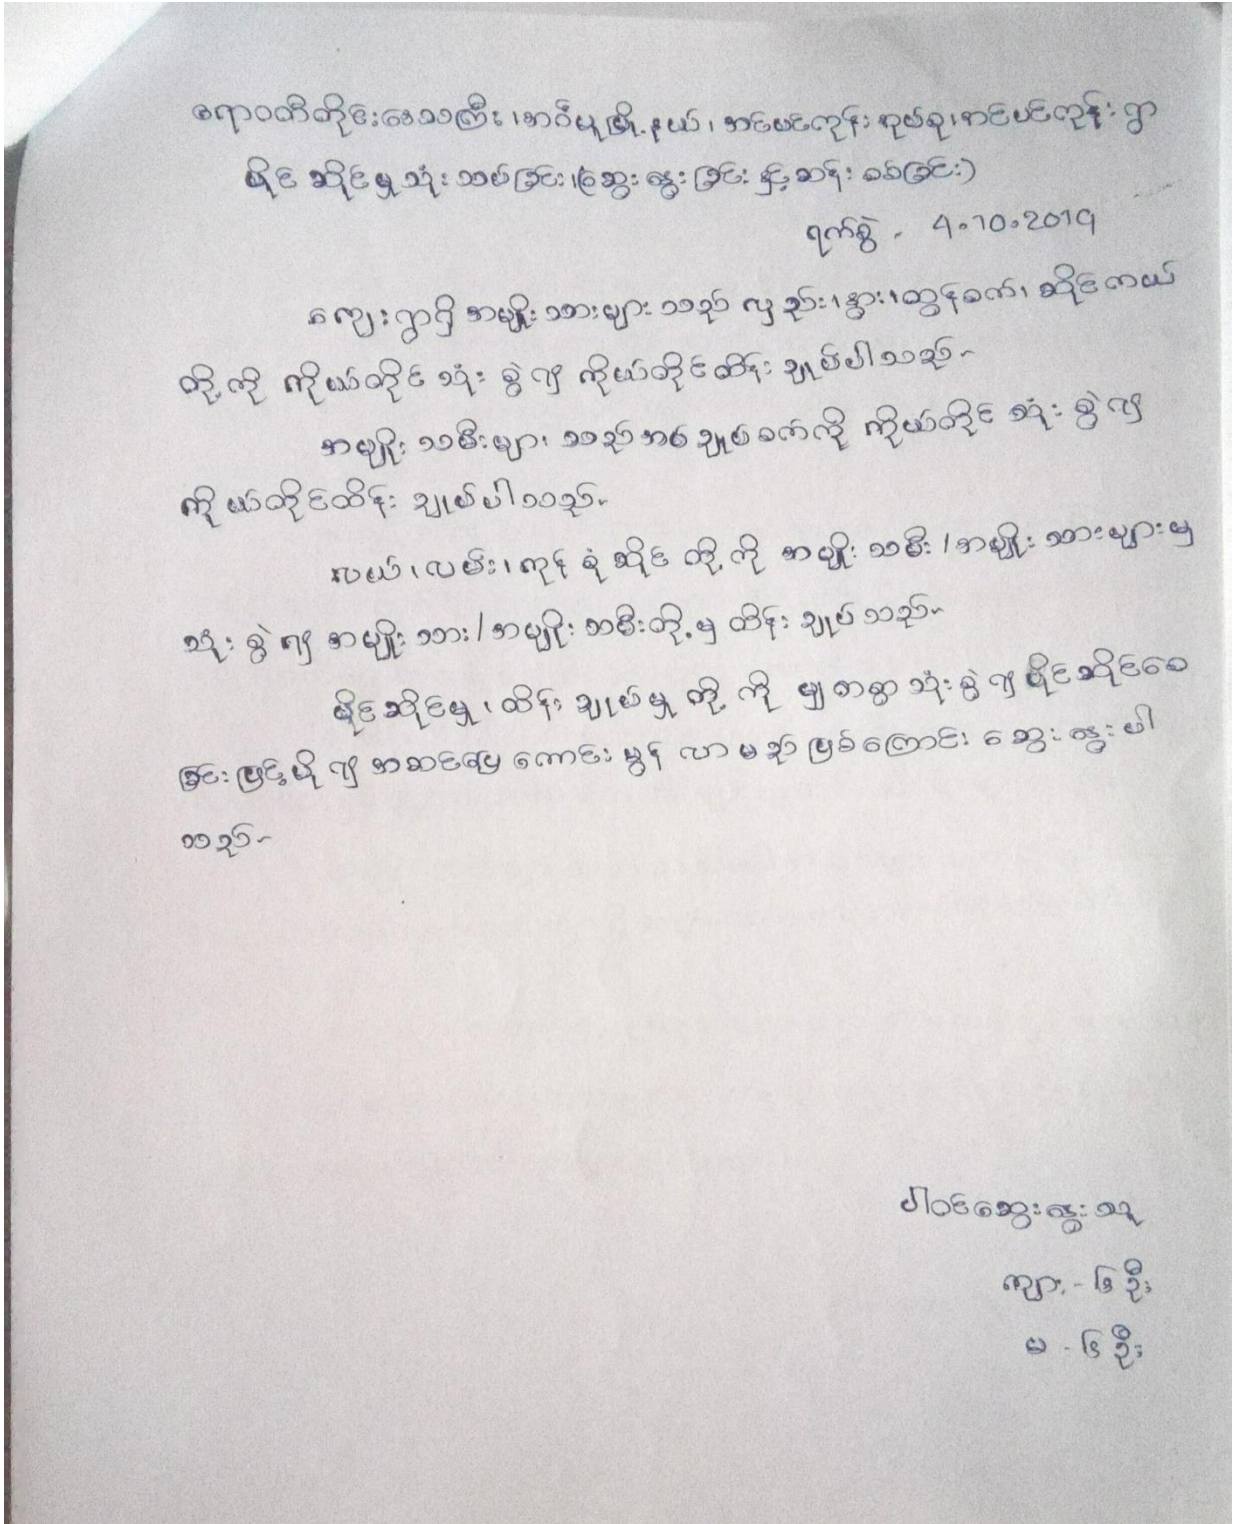 ဧရာဝတီတိုင်းဒေသကြီး၊ အင်္ဂပူမြို့နယ်၊ အင်ပင်ကုန်းအုပ်စု၊ အင်ပင်ကုန်းရွာ
ပိုင်ဆိုင်မှုသုံးသပ်ခြင်း၊ (ဆွေးနွေးခြင်းနှင့်ဆန်းစစ်ခြင်း)
ရက်စွဲ - 4.10.2019
ကျေးရွာရှိ အမျိုးသားများသည် လှည်း၊ နွား၊ ထွန်စက်၊ ဆိုင်ကယ်
တို့ကို ကိုယ်တိုင်သုံးစွဲ၍ ကိုယ်တိုင်ထိန်းချုပ်ပါသည်။
အမျိုးသမီးများသည် အပ်ချုပ်စက်ကို ကိုယ်တိုင်သုံးစွဲ၍
ကိုယ်တိုင်ထိန်းချုပ်ပါသည်။
လယ်၊ လမ်း၊ ကုန်စုံဆိုင်တို့ကို အမျိုးသမီး/အမျိုးသားများမှ
သုံးစွဲ၍ အမျိုးသား/အမျိုးသမီးတို့မှ ထိန်းချုပ်သည်။
ပိုင်ဆိုင်မှု၊ ထိန်းချုပ်မှုတို့ကို မျှတစွာသုံးစွဲ၍ ပိုင်ဆိုင်စေ
ခြင်းဖြင့်ပို၍ အဆင်ပြေကောင်းမွန်လာမည်ဖြစ်ကြောင်း ဆွေးနွေးပါ
သည်။
ပါဝင်ဆွေးနွေးသူ
ကျား - ၆ဦး
မ - ၆ဦး